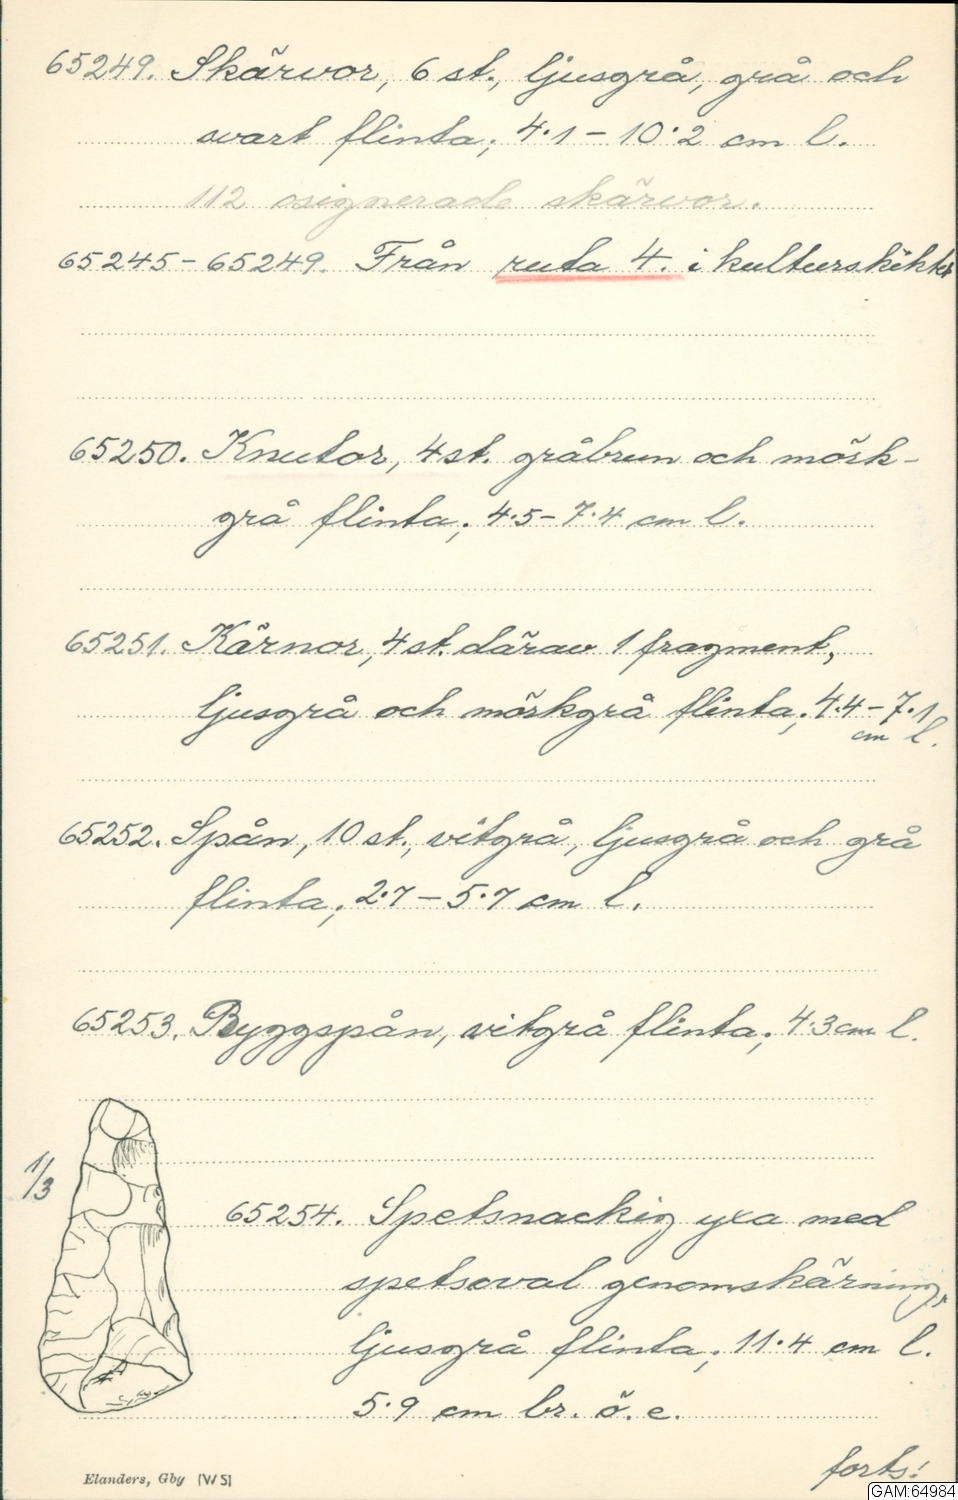 65249. Skärvor, 6 st., ljusgrå, grå och
svart flinta; 4·1 - 10·2 cm l.
112 osignerade skärvor.
65245 - 65249. Från ruta 4. i kulturskiktet
65250. Knutor, 4 st. gråbrun och mörk-
grå flinta; 4·5 - 7·4 cm l.
65251. Kärnor, 4 st. därav 1 fragment,
ljusgrå och mörkgrå flinta; 4·4 - 7·1
cm l.
65252. Spån, 10 st., vitgrå, ljusgrå och grå
flinta; 2·7 - 5·7 cm l.
65253. Ryggspån, vitgrå flinta; 4·3 cm l.
1/3
65254. Spetsnackig yxa med
spetsoval genomskärning,
ljusgrå flinta; 11·4 cm l.
5·9 cm br. ö. e.
forts!
Elanders, Gby (WS)
GAM:64984